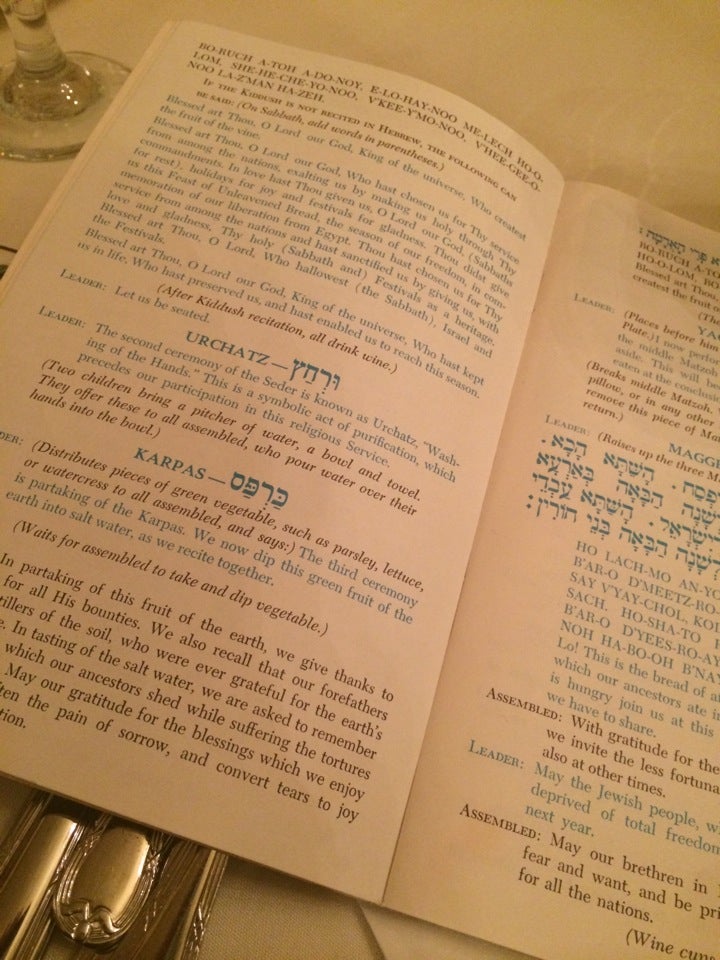 BO-RUCH A-TOH A-DO-NOY, E-LO-HAY-NOO ME-LECH HO-O-
LOM, SHE-HE-CHE-YO-NOO, V'KEE-Y'MO-NOO, V'HEE-GEE-O-
NOO LA-Z'MAN HA-ZEH.
IF THE KIDDUSH IS NOT RECITED IN HEBREW, THE FOLLOWING CAN
BE SAID: (On Sabbath, add words in parentheses.)
Blessed art Thou, O Lord our God, King of the universe, Who createst
the fruit of the vine.
Blessed art Thou, O Lord our God, Who hast chosen us for Thy service
from among the nations, exalting us by making us holy through Thy
commandments. In love hast Thou given us, O Lord our God, (Sabbaths
for rest), holidays for joy and festivals for gladness. Thou didst give
us this Feast of Unleavened Bread, the season of our freedom, in com-
memoration of our liberation from Egypt. Thou hast chosen us for Thy
service from among the nations and hast sanctified us by giving us, with
love and gladness, Thy holy (Sabbath and) Festivals as a heritage.
Blessed art Thou, O Lord, Who hallowest (the Sabbath), Israel and
the Festivals.
Blessed art Thou, O Lord our God, King of the universe, Who hast kept
us in life, Who hast preserved us, and hast enabled us to reach this season.
(After Kiddush recitation, all drink wine.)
LEADER: Let us be seated.
URCHATZ — וּרְחַץ
LEADER: The second ceremony of the Seder is known as Urchatz, "Wash-
ing of the Hands." This is a symbolic act of purification, which
precedes our participation in this religious Service.
(Two children bring a pitcher of water, a bowl and towel.
They offer these to all assembled, who pour water over their
hands into the bowl.)
KARPAS — כַּרְפַּס
DER: (Distributes pieces of green vegetable, such as parsley, lettuce,
or watercress to all assembled, and says:) The third ceremony
is partaking of the Karpas. We now dip this green fruit of the
earth into salt water, as we recite together.
(Waits for assembled to take and dip vegetable.)
In partaking of this fruit of the earth, we give thanks to
for all His bounties. We also recall that our forefathers
tillers of the soil, who were ever grateful for the earth's
e. In tasting of the salt water, we are asked to remember
which our ancestors shed while suffering the tortures
May our gratitude for the blessings which we enjoy
ten the pain of sorrow, and convert tears to joy
tion.
פְּרִי הָאֲדָמָה:
BO-RUCH A-TO
HO-O-LOM, BO
Blessed art Thou,
createst the fruit o
(The
YA
LEADER: (Places before him
Plate.) I now, perfo
the middle Matzoh
aside. This will be
eaten at the conclusi
(Breaks middle Matzoh.
pillow, or in any other
remove this piece of Ma
return.)
MAGG
LEADER: (Raises up the three M
הָשַׁתָּא הָכָא.
הַבָּאָה בְּאַרְעָא
הָשַׁתָּא עַבְדֵי
הַבָּאָה בְּנֵי חוֹרִין:
HO LACH-MO AN-YO
B'AR-O D'MEETZ-RO
SAY V'YAY-CHOL, KOL
SACH. HO-SHA-TO H
B'AR-O D'YEES-RO-AY
NOH HA-BO-OH B'NAY
Lo! This is the bread of af
which our ancestors ate in
is hungry join us at this
we have to share.
ASSEMBLED: With gratitude for the
we invite the less fortuna
also at other times.
LEADER: May the Jewish people, w
deprived of total freedom
next year.
ASSEMBLED: May our brethren in
fear and want, and be pri
for all the nations.
(Wine cups